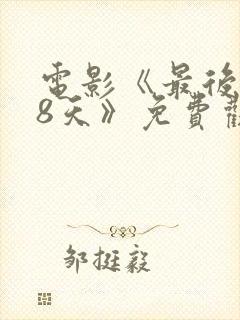 電影《最後
8天》免費
邹挺毅